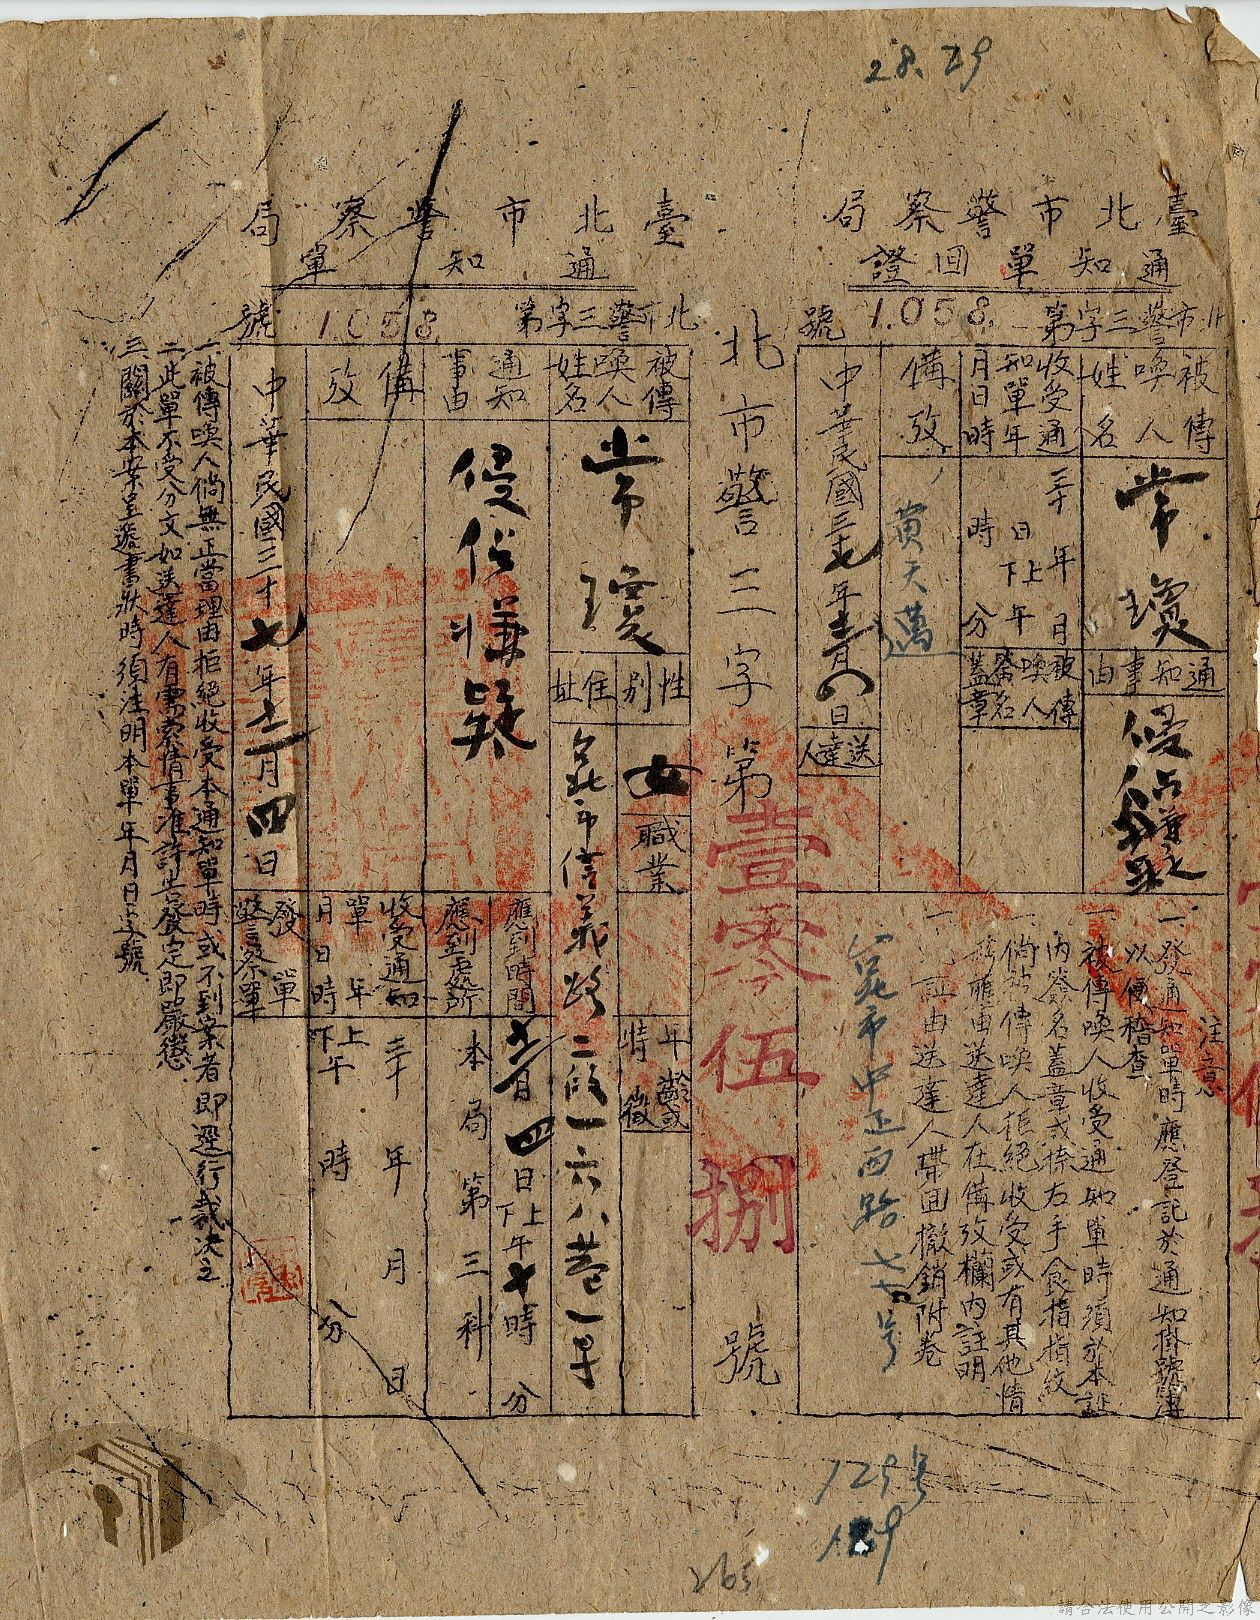 28.29
臺北市警察局
通知單回證
北市警三字第1058號
被傳喚人姓名
常瓊
通知事由
侵佔嫌疑
收受通知單年月日時
三十 年 月 日 上下午 時 分
被傳喚人簽名蓋章
備攷
黃天邁
中華民國三十七年 月 日
送達人
注意
一、發通知單時應登記於通知掛號簿以便稽查
一、被傳喚人收受通知單時須於本證內簽名蓋章或捺右手食指指紋
一、倘被傳喚人拒絕收受或有其他情形應由送達人在備攷欄內註明
一、此証由送達人帶回撤銷附卷
北市中正西路七 號
北市警三字第壹零伍捌號
臺北市警察局
通知單
北市警三字第1058號
被傳喚人姓名
常瓊
性別
女
職業
年齡或特徵
住址
台北市信義路二段一六八巷一号
通知事由
侵佔嫌疑
應到時間
十二月四日上下午十時 分
應到處所
本局第三科
備攷
收受通知單年月日時
三十 年 月 日
上下午 時 分
中華民國三十七年十二月四日
發單警察單
一、被傳喚人倘無正當理由拒絕收受本通知單時或不到案者即逕行裁決之
二、此單不受分文如送達人有需索情事准許告發定即嚴懲
三、關於本案呈遞書狀時須注明本單年月日字號
129号
265
請合法使用公開之影像